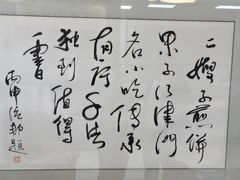 二嫂子煎饼
果子乃津门
名小吃传承
有序手法
独到值得
一書
丙申 题